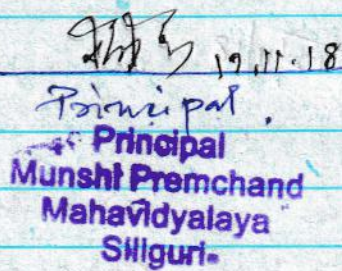 19.11.18
Principal.
Principal
Munshi Premchand
Mahavidyalaya
Siliguri.